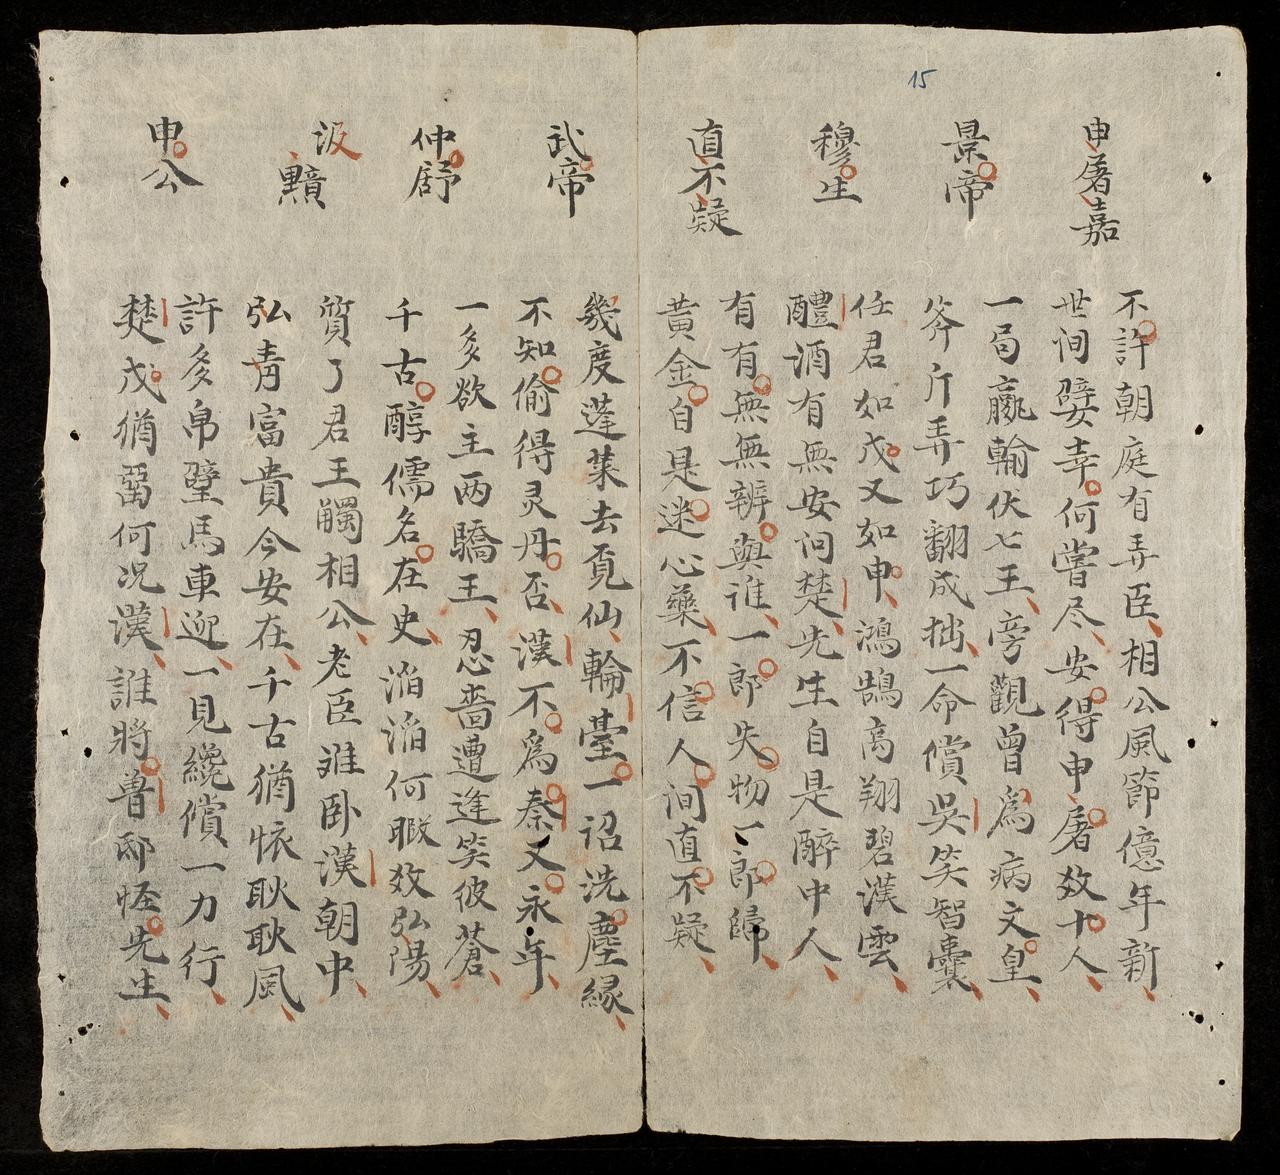 申屠嘉
不許朝庭有弄臣相公風節億年新
世间嬖幸何嘗尽安得申屠效十人
景帝
一局贏輸伏七王旁觀曾爲病文皇
斧斤弄巧翻成拙一命償吳笑智囊
穆生
任君如戊又如申鴻鵠高翔碧漢雲
醴酒有無安问楚先生自是醉中人
直不疑
有有無無辨與谁一郎失物一郎歸
黃金自是迷心藥不信人间直不疑
武帝
幾度蓬莱去覔仙輪臺一诏洗塵緣
不知偷得灵丹否漢不爲秦又永年
仲舒
一多欲主两驕王忍啬遭逢笑彼蒼
千古醇儒名在史滔滔何暇效弘陽
汲黯
質了君王觸相公老臣难卧漢朝中
弘青富貴今安在千古猶懷耿耿風
申公
許多帛璧馬車迎一見纔償一力行
楚戊猶何况漢誰將魯邸怪先生
15